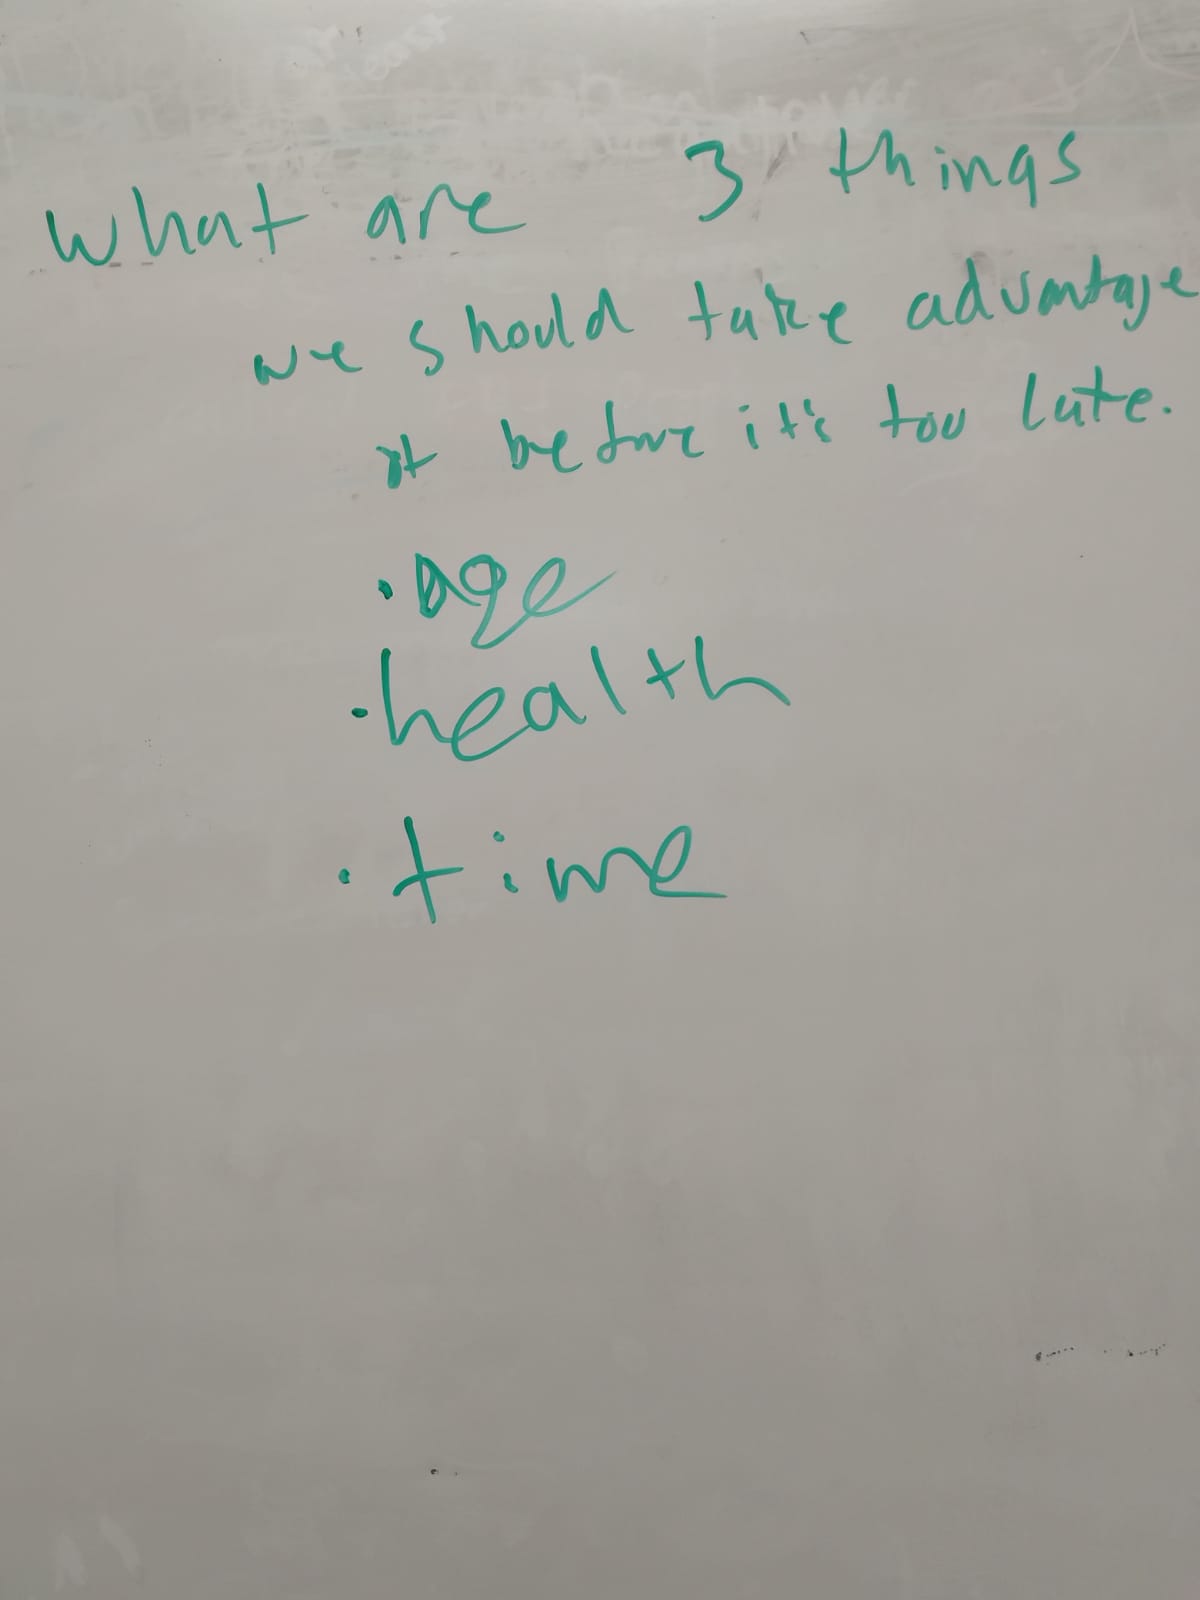 What are 3 things
we should take advantage
of before it's too late.
• age
• health
• time